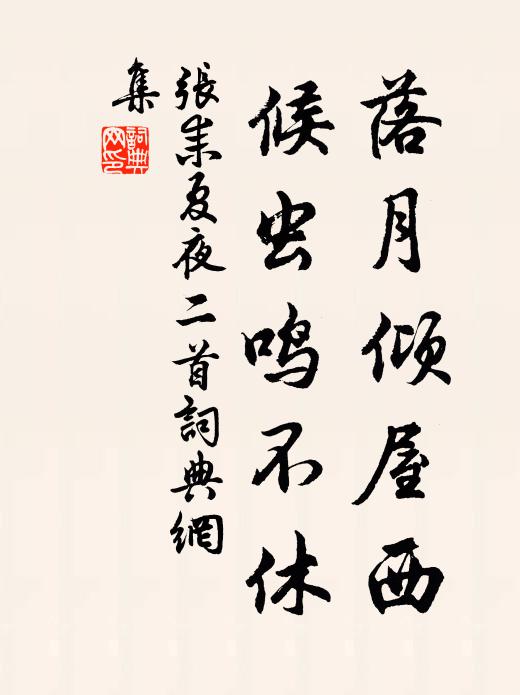 落月倾屋西
候虫鸣不休
張耒夏夜二首詞典網
集
詞典
网印